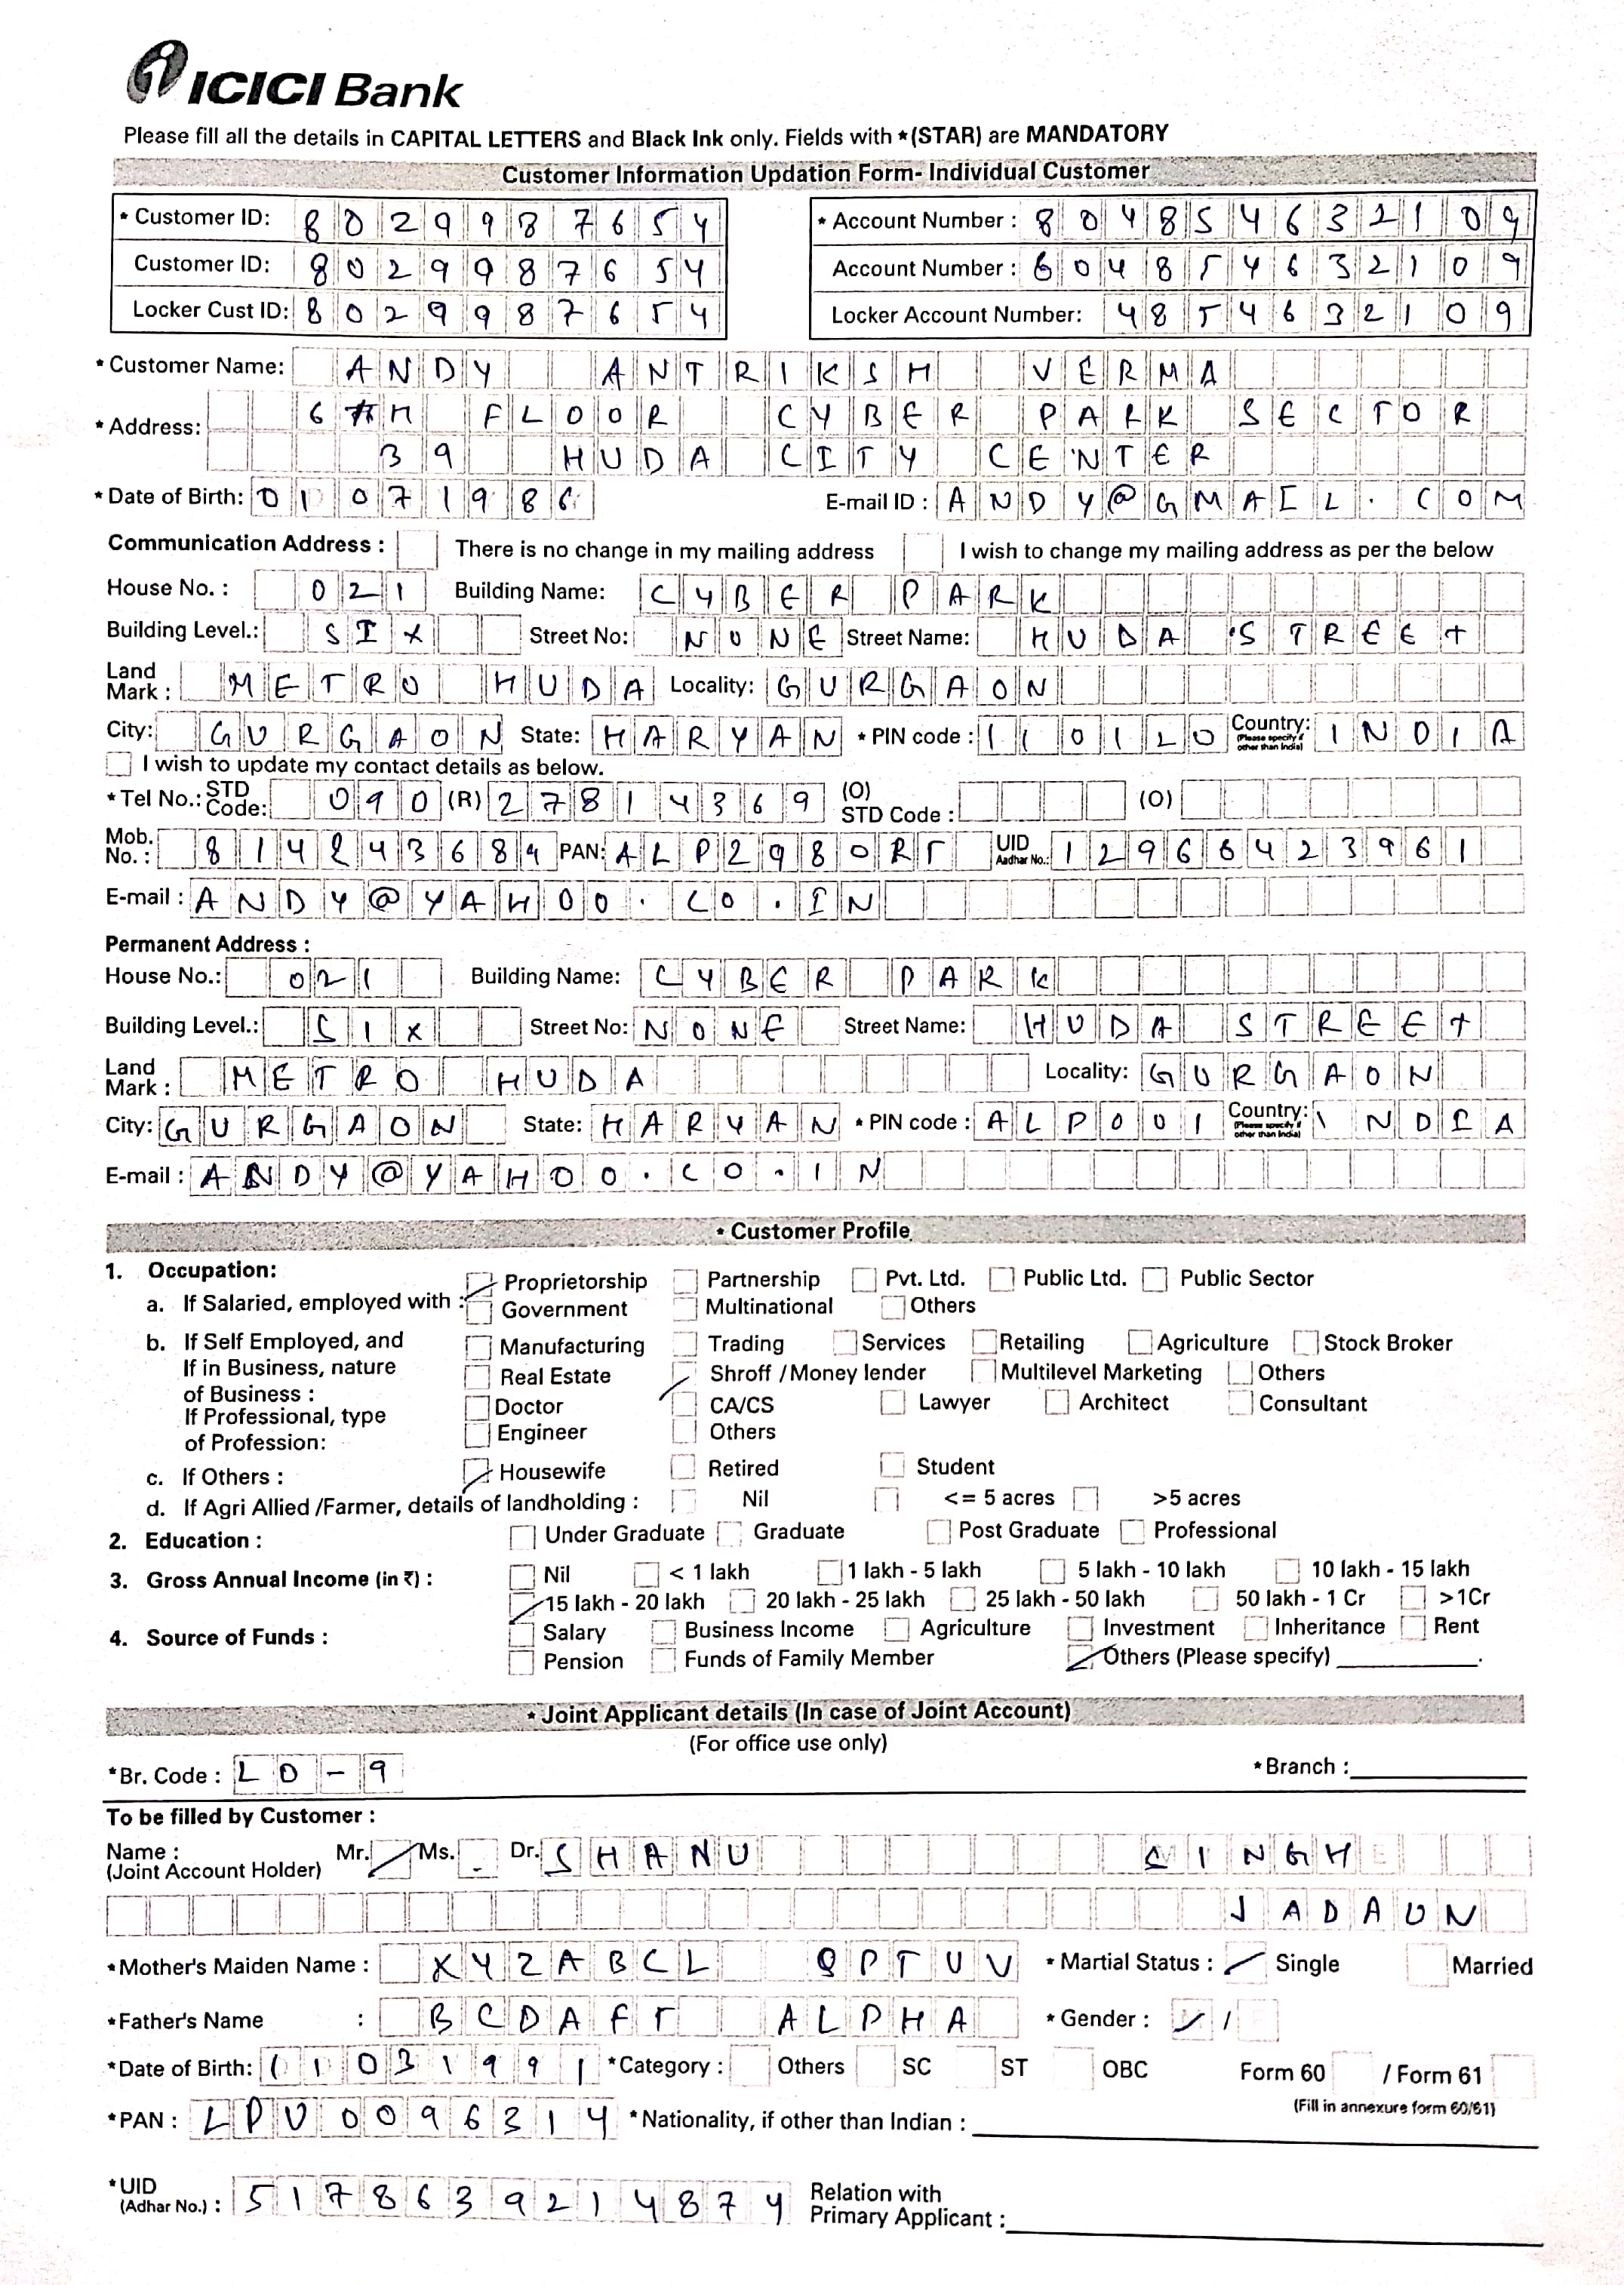 ICICI Bank
Please fill all the details in CAPITAL LETTERS and Black Ink only. Fields with *(STAR) are MANDATORY
Customer Information Updation Form- Individual Customer
* Customer ID: 8029987654 * Account Number : 804854632109
Customer ID: 8029987654 Account Number : 604854632109
Locker Cust ID: 8029987654 Locker Account Number: 4854632109
* Customer Name: ANDY ANTRIKSH VERMA
* Address: 6TH FLOOR CYBER PARK SECTOR
39 HUDA CITY CENTER
* Date of Birth: 01071986 E-mail ID : ANDY@GMAIL.COM
Communication Address : There is no change in my mailing address I wish to change my mailing address as per the below
House No. : 021 Building Name: CYBER PARK
Building Level.: SIX Street No: NONE Street Name: HUDA STREET
Land Mark : METRO HUDA Locality: GURGAON
City: GURGAON State: HARYAN * PIN code : 110120 Country: (Please specify if other than India) INDIA
I wish to update my contact details as below.
* Tel No.: STD Code: 090 (R) 27814369 (O) STD Code : (O)
Mob. No. : 814243689 PAN: ALP2980RT UID Aadhar No.: 12966423961
E-mail : ANDY@YAHOO.CO.IN
Permanent Address :
House No.: 021 Building Name: CYBER PARK
Building Level.: SIX Street No: NONE Street Name: HUDA STREET
Land Mark : METRO HUDA Locality: GURGAON
City: GURGAON State: HARYAN * PIN code : ALP001 Country: (Please specify if other than India) INDIA
E-mail : ANDY@YAHOO.CO.IN
* Customer Profile
1. Occupation:
a. If Salaried, employed with : Proprietorship Partnership Pvt. Ltd. Public Ltd. Public Sector
Government Multinational Others
b. If Self Employed, and Manufacturing Trading Services Retailing Agriculture Stock Broker
If in Business, nature Real Estate Shroff / Money lender Multilevel Marketing Others
of Business :
If Professional, type Doctor CA/CS Lawyer Architect Consultant
of Profession: Engineer Others
c. If Others : Housewife Retired Student
d. If Agri Allied /Farmer, details of landholding : Nil <= 5 acres >5 acres
2. Education : Under Graduate Graduate Post Graduate Professional
3. Gross Annual Income (in ₹) : Nil < 1 lakh 1 lakh - 5 lakh 5 lakh - 10 lakh 10 lakh - 15 lakh
15 lakh - 20 lakh 20 lakh - 25 lakh 25 lakh - 50 lakh 50 lakh - 1 Cr >1Cr
4. Source of Funds : Salary Business Income Agriculture Investment Inheritance Rent
Pension Funds of Family Member Others (Please specify)
* Joint Applicant details (In case of Joint Account)
(For office use only)
*Br. Code : LD-9 *Branch :
To be filled by Customer :
Name : (Joint Account Holder) Mr. Ms. Dr. SHANU SINGH
JADAUN
*Mother's Maiden Name : XYZABCL QPTUV * Martial Status : Single Married
*Father's Name : BCDAFT ALPHA * Gender : /
*Date of Birth: 11031991 *Category : Others SC ST OBC Form 60 / Form 61
(Fill in annexure form 60/61)
*PAN : LPU0096314 *Nationality, if other than Indian :
*UID (Adhar No.) : 5178639214874 Relation with Primary Applicant :